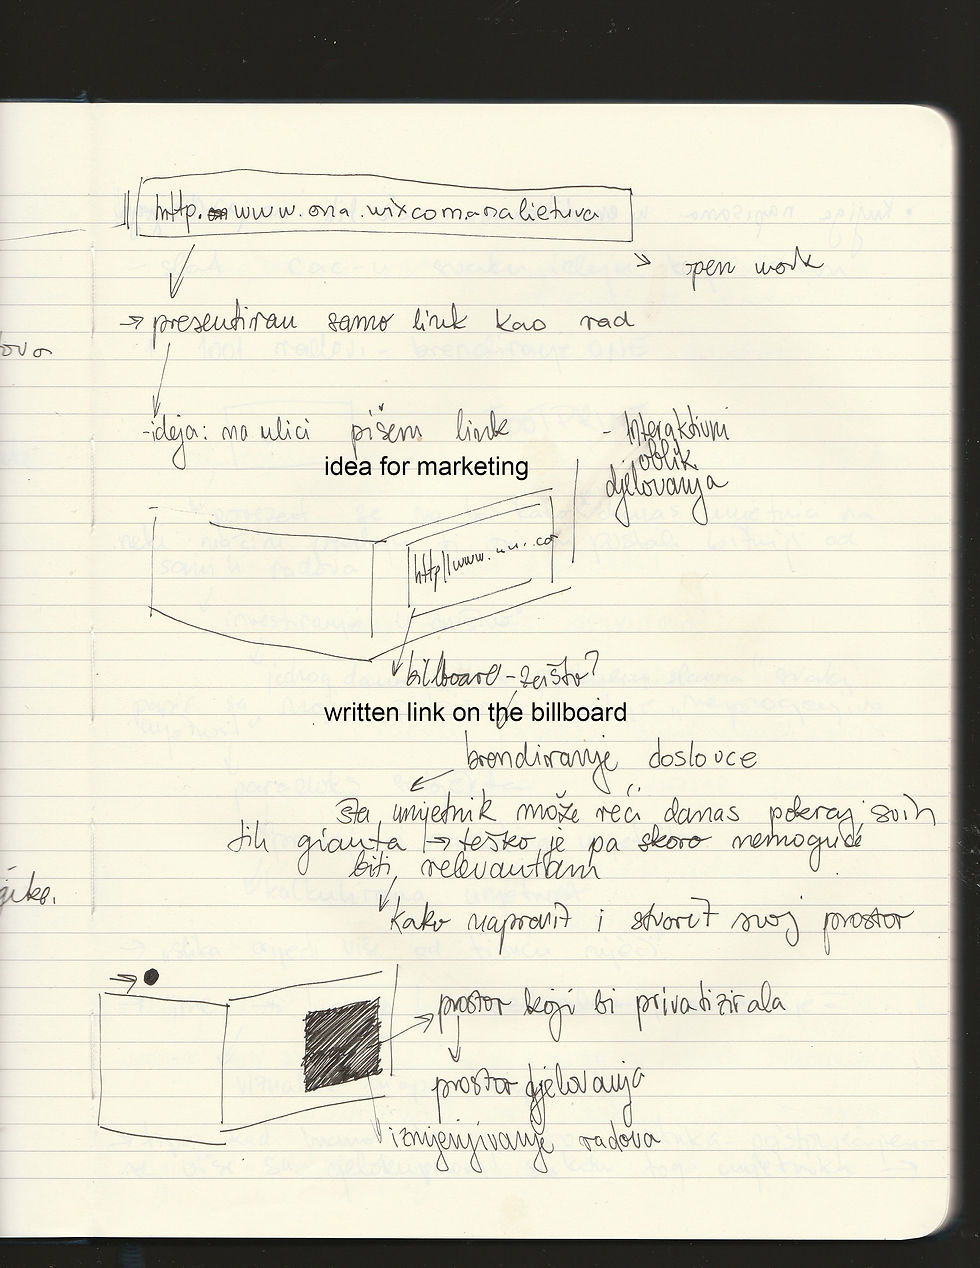 http. www.ona.wixcomanalietuva
open work
→ presentiran samo link kao rad
-ideja: na ulici pišem link
- Interaktivni
oblik
djelovanja
idea for marketing
http//www.
billboard - zašto?
written link on the billboard
brendiranje doslovce
šta umjetnik može reći danas pokraj svih
tih gianta → teško je pa skoro nemoguće
biti relevantan
kako napravit i stvorit svoj prostor
prostor koji bi privatizirala
prostor djelovanja
izmjenjivanje radova